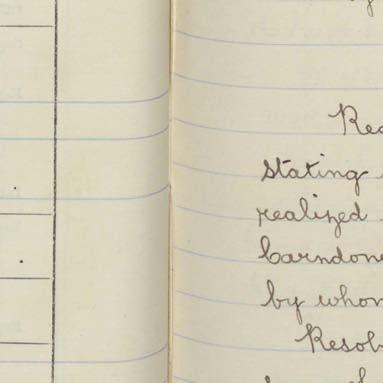 Rec
stating
realized
barndone
by whom
Resol